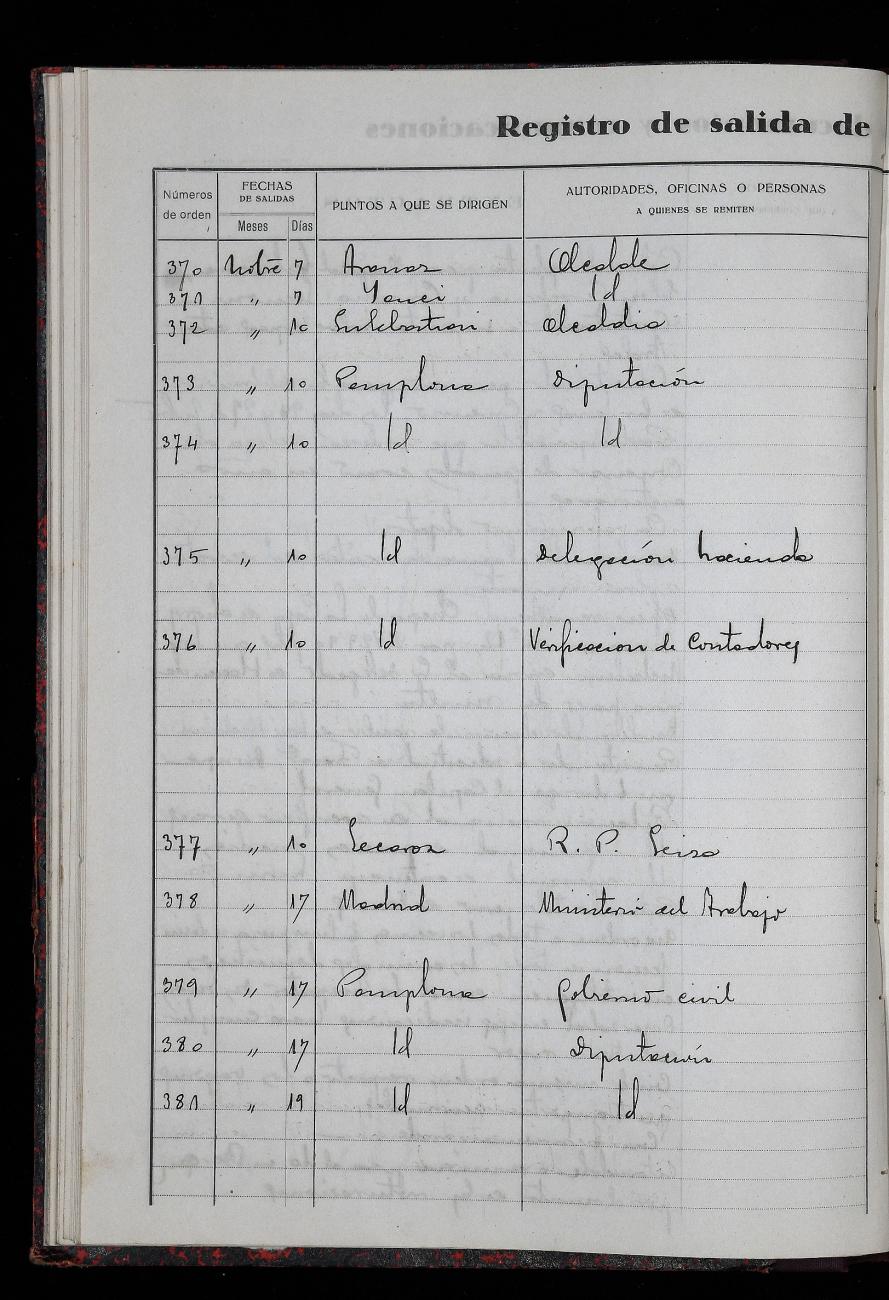 Registro de salida de
Números de orden
FECHAS DE SALIDAS
Meses Días
PUNTOS A QUE SE DIRIGEN
AUTORIDADES, OFICINAS O PERSONAS
A QUIENES SE REMITEN
370 Nobre 7 Aranaz Alcalde
371 " 7 Yanci Id
372 " 10 Alcaldia
373 " 10 Pamplona Diputación
374 " 10 Id Id
375 " 10 Id Delegación hacienda
376 " 10 Id Verificacion de Contadores
377 " 10 Lecaroz R. P. Leiza
378 " 17 Madrid Ministerio del Trabajo
379 " 17 Pamplona Gobierno civil
380 " 17 Id Diputación
381 " 19 Id Id